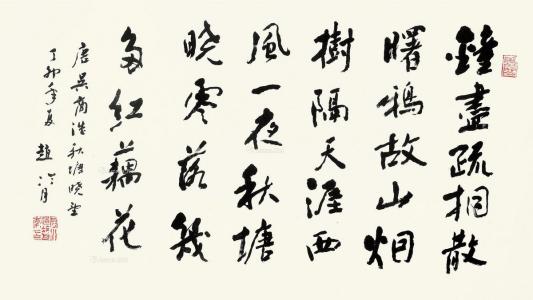 鐘盡疏桐散
曙鴉故山烟
樹隔天涯西
風一夜秋塘
曉零落幾
多紅藕花
唐吴商浩秋塘曉望
丁卯年夏趙冷月